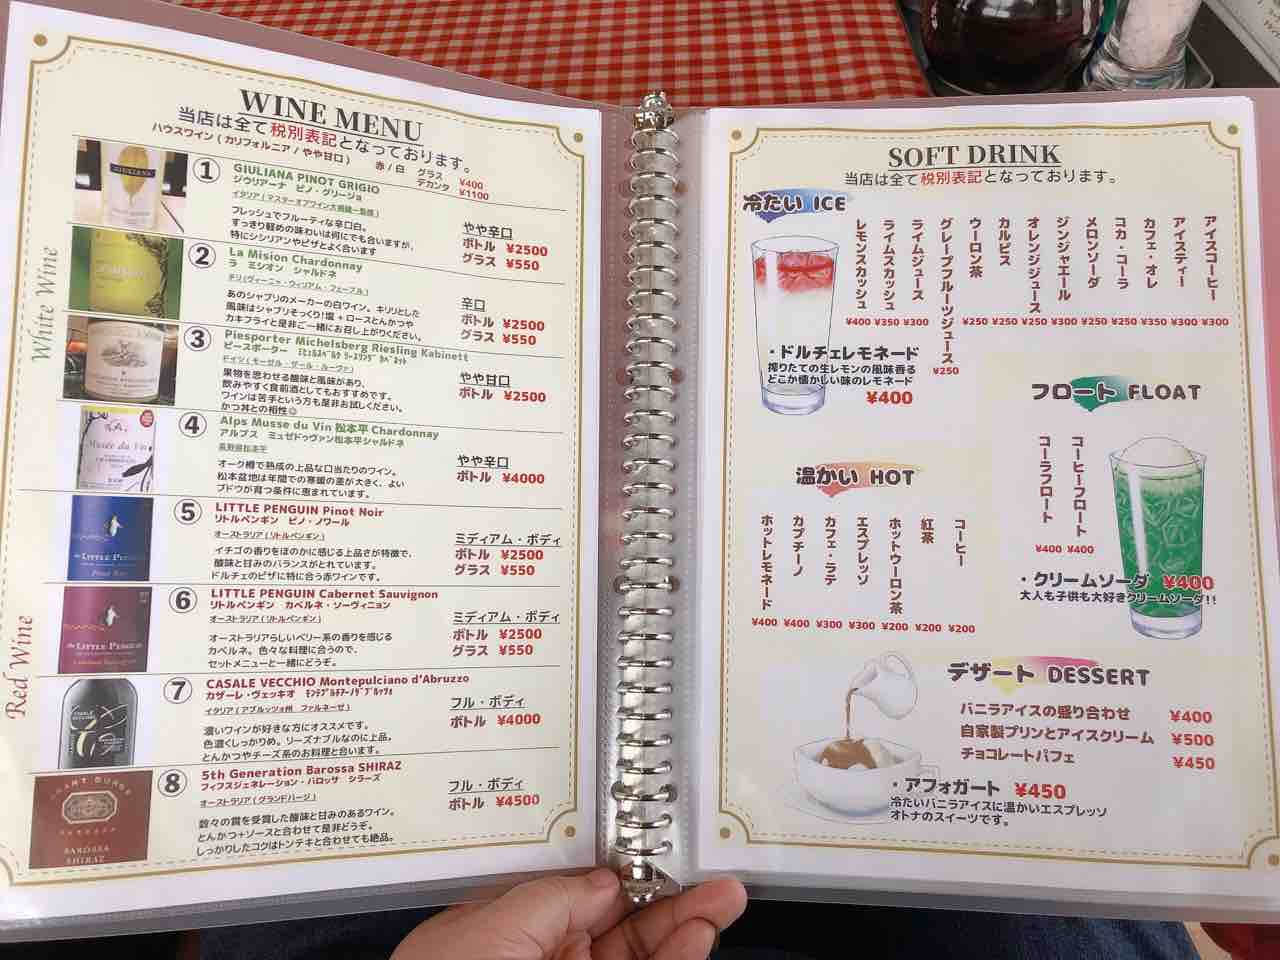 WINE MENU
当店は全て税別表記となっております。
ハウスワイン ( カリフォルニア / やや甘口 ) 赤 / 白 グラス ¥400
デカンタ ¥1100
White Wine
① GIULIANA PINOT GRIGIO
ジウリアーナ ピノ・グリージョ
フレッシュでフルーティな辛口白。
すっきり軽めの味わいは何にでも合いますが、
特にシシリアンやピザとよく合います
やや辛口
ボトル ¥2500
グラス ¥550
② La Mision Chardonnay
ラ ミシオン シャルドネ
チリ ( ヴィーニャ・ウィリアム・フェーブル )
あのシャブリのメーカーの白ワイン。キリリとした
風味はシャブリそっくり! 塩 + ロースとんかつや
カキフライと是非ご一緒にお召し上がりください。
辛口
ボトル ¥2500
グラス ¥550
③ Piesporter Michelsberg Riesling Kabinett
ピースポーター ﾐﾋｪﾙｽﾍﾞﾙｸ ﾘｰｽﾘﾝｸﾞ ｶﾋﾞﾈｯﾄ
ドイツ ( モーゼル・ザール・ルーヴァ )
果物を思わせる酸味と風味があり、
飲みやすく食前酒としてもおすすめです。
ワインは苦手という方も是非お試しください。
かつ丼との相性◎
やや甘口
ボトル ¥2500
④ Alps Musse du Vin 松本平 Chardonnay
アルプス ミュゼドゥヴァン松本平シャルドネ
長野県松本平
オーク樽で熟成の上品な口当たりのワイン。
松本盆地は年間での寒暖の差が大きく、よい
ブドウが育つ条件に恵まれています。
やや辛口
ボトル ¥4000
Red Wine
⑤ LITTLE PENGUIN Pinot Noir
リトルペンギン ピノ・ノワール
オーストラリア ( リトルペンギン )
イチゴの香りをほのかに感じる上品さが特徴で、
酸味と甘みのバランスがとれています。
ドルチェのピザに特に合う赤ワインです。
ミディアム・ボディ
ボトル ¥2500
グラス ¥550
⑥ LITTLE PENGUIN Cabernet Sauvignon
リトルペンギン カベルネ・ソーヴィニョン
オーストラリア ( リトルペンギン )
オーストラリアらしいベリー系の香りを感じる
カベルネ。色々な料理に合うので、
セットメニューと一緒にどうぞ。
ミディアム・ボディ
ボトル ¥2500
グラス ¥550
⑦ CASALE VECCHIO Montepulciano d'Abruzzo
カザーレ・ヴェッキオ ﾓﾝﾃﾌﾟﾙﾁｱｰﾉﾀﾞﾌﾞﾙｯﾂｫ
イタリア ( アブルッツォ州 ファルネーゼ )
濃いワインが好きな方にオススメです。
色濃くしっかりめ。リーズナブルなのに上品。
とんかつやチーズ系のお料理と合います。
フル・ボディ
ボトル ¥4000
⑧ 5th Generation Barossa SHIRAZ
フィフスジェネレーション・バロッサ シラーズ
オーストラリア ( グランドバージ )
数々の賞を受賞した酸味と甘みのあるワイン。
とんかつ+ソースと合わせて是非どうぞ。
しっかりしたコクはトンテキと合わせても絶品。
フル・ボディ
ボトル ¥4500
GIULIANA
Musée du Vin
the LITTLE PENGUIN
Pinot Noir
the LITTLE PENGUIN
Cabernet Sauvignon
GRANT BURGE
BAROSSA
SHIRAZ
SOFT DRINK
当店は全て税別表記となっております。
冷たい ICE
アイスコーヒー ¥300
アイスティー ¥300
カフェ・オレ ¥350
コカ・コーラ ¥250
メロンソーダ ¥250
ジンジャエール ¥300
オレンジジュース ¥250
カルピス ¥250
ウーロン茶 ¥250
グレープフルーツジュース ¥250
ライムジュース ¥300
ライムスカッシュ ¥350
レモンスカッシュ ¥400
・ドルチェレモネード
搾りたての生レモンの風味香る
どこか懐かしい味のレモネード
¥400
フロート FLOAT
コーヒーフロート ¥400
コーラフロート ¥400
・クリームソーダ ¥400
大人も子供も大好きクリームソーダ!!
温かい HOT
コーヒー ¥200
紅茶 ¥200
ホットウーロン茶 ¥200
エスプレッソ ¥300
カフェ・ラテ ¥300
カプチーノ ¥400
ホットレモネード ¥400
デザート DESSERT
バニラアイスの盛り合わせ ¥400
自家製プリンとアイスクリーム ¥500
チョコレートパフェ ¥450
・アフォガート ¥450
冷たいバニラアイスに温かいエスプレッソ
オトナのスイーツです。